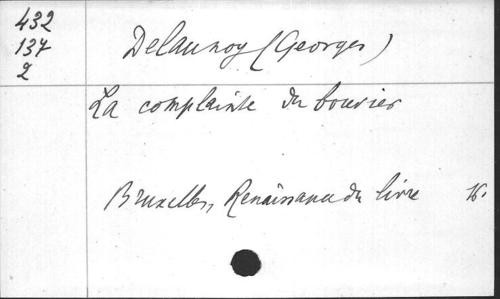 432
137
2
Delaunoy (Georges)
La complainte du bouvier
Bruxelles, Renaissance du livre 16.